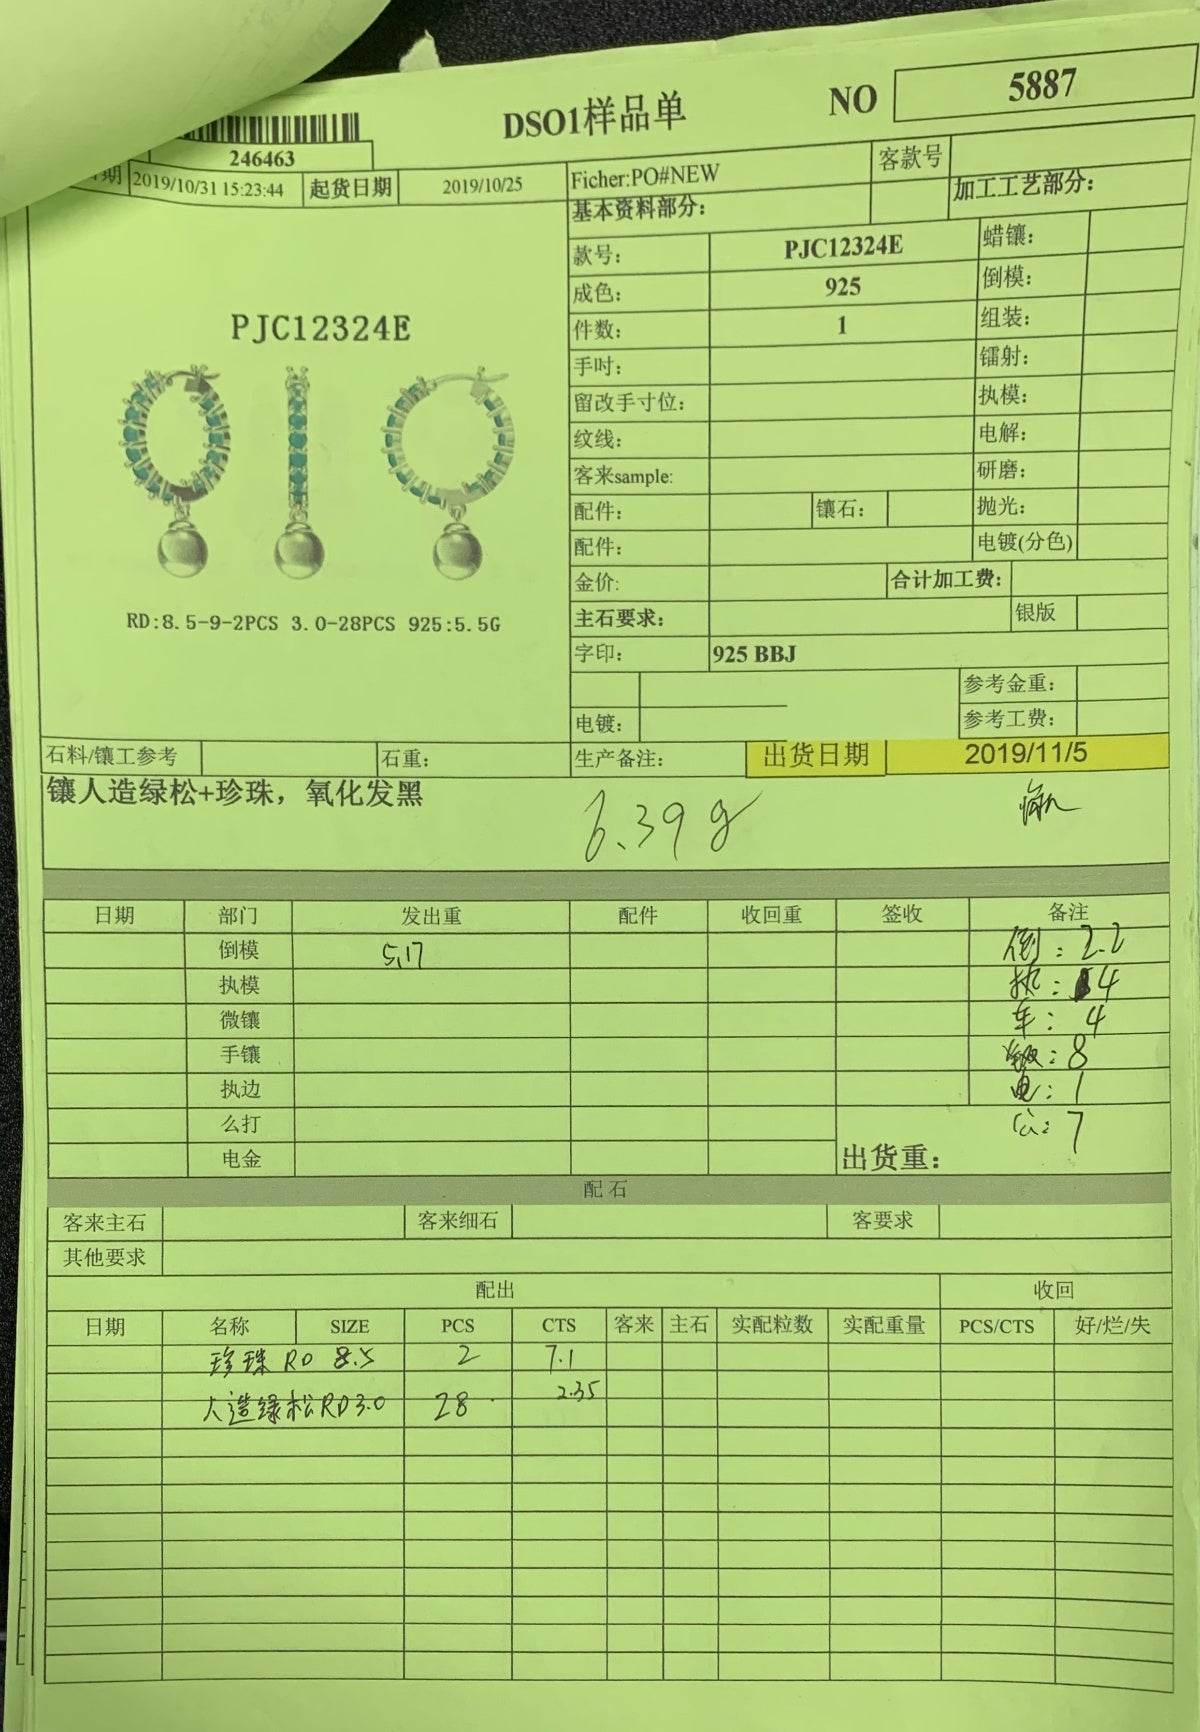 DSO1样品单 NO 5887
246463
期 2019/10/31 15:23:44 起货日期 2019/10/25 Ficher:PO#NEW 客款号
基本资料部分: 加工工艺部分:
款号: PJC12324E 蜡镶:
成色: 925 倒模:
件数: 1 组装:
手吋: 镭射:
留改手寸位: 执模:
纹线: 电解:
客来sample: 研磨:
配件: 镶石: 抛光:
配件: 电镀(分色)
金价: 合计加工费:
主石要求: 银版
字印: 925 BBJ
参考金重:
电镀: 参考工费:
PJC12324E
RD:8.5-9-2PCS 3.0-28PCS 925:5.5G
石料/镶工参考 石重: 生产备注: 出货日期 2019/11/5
镶人造绿松+珍珠，氧化发黑
6.39g
日期 部门 发出重 配件 收回重 签收 备注
倒模 5.17 倒: 2.2
执模 执: 4
微镶 车: 4
手镶 8
执边 电: 1
么打 7
电金 出货重:
配石
客来主石 客来细石 客要求
其他要求
配出 收回
日期 名称 SIZE PCS CTS 客来 主石 实配粒数 实配重量 PCS/CTS 好/烂/失
珍珠 RD 8.5 2 7.1
人造绿松RD3.0 28 2.35